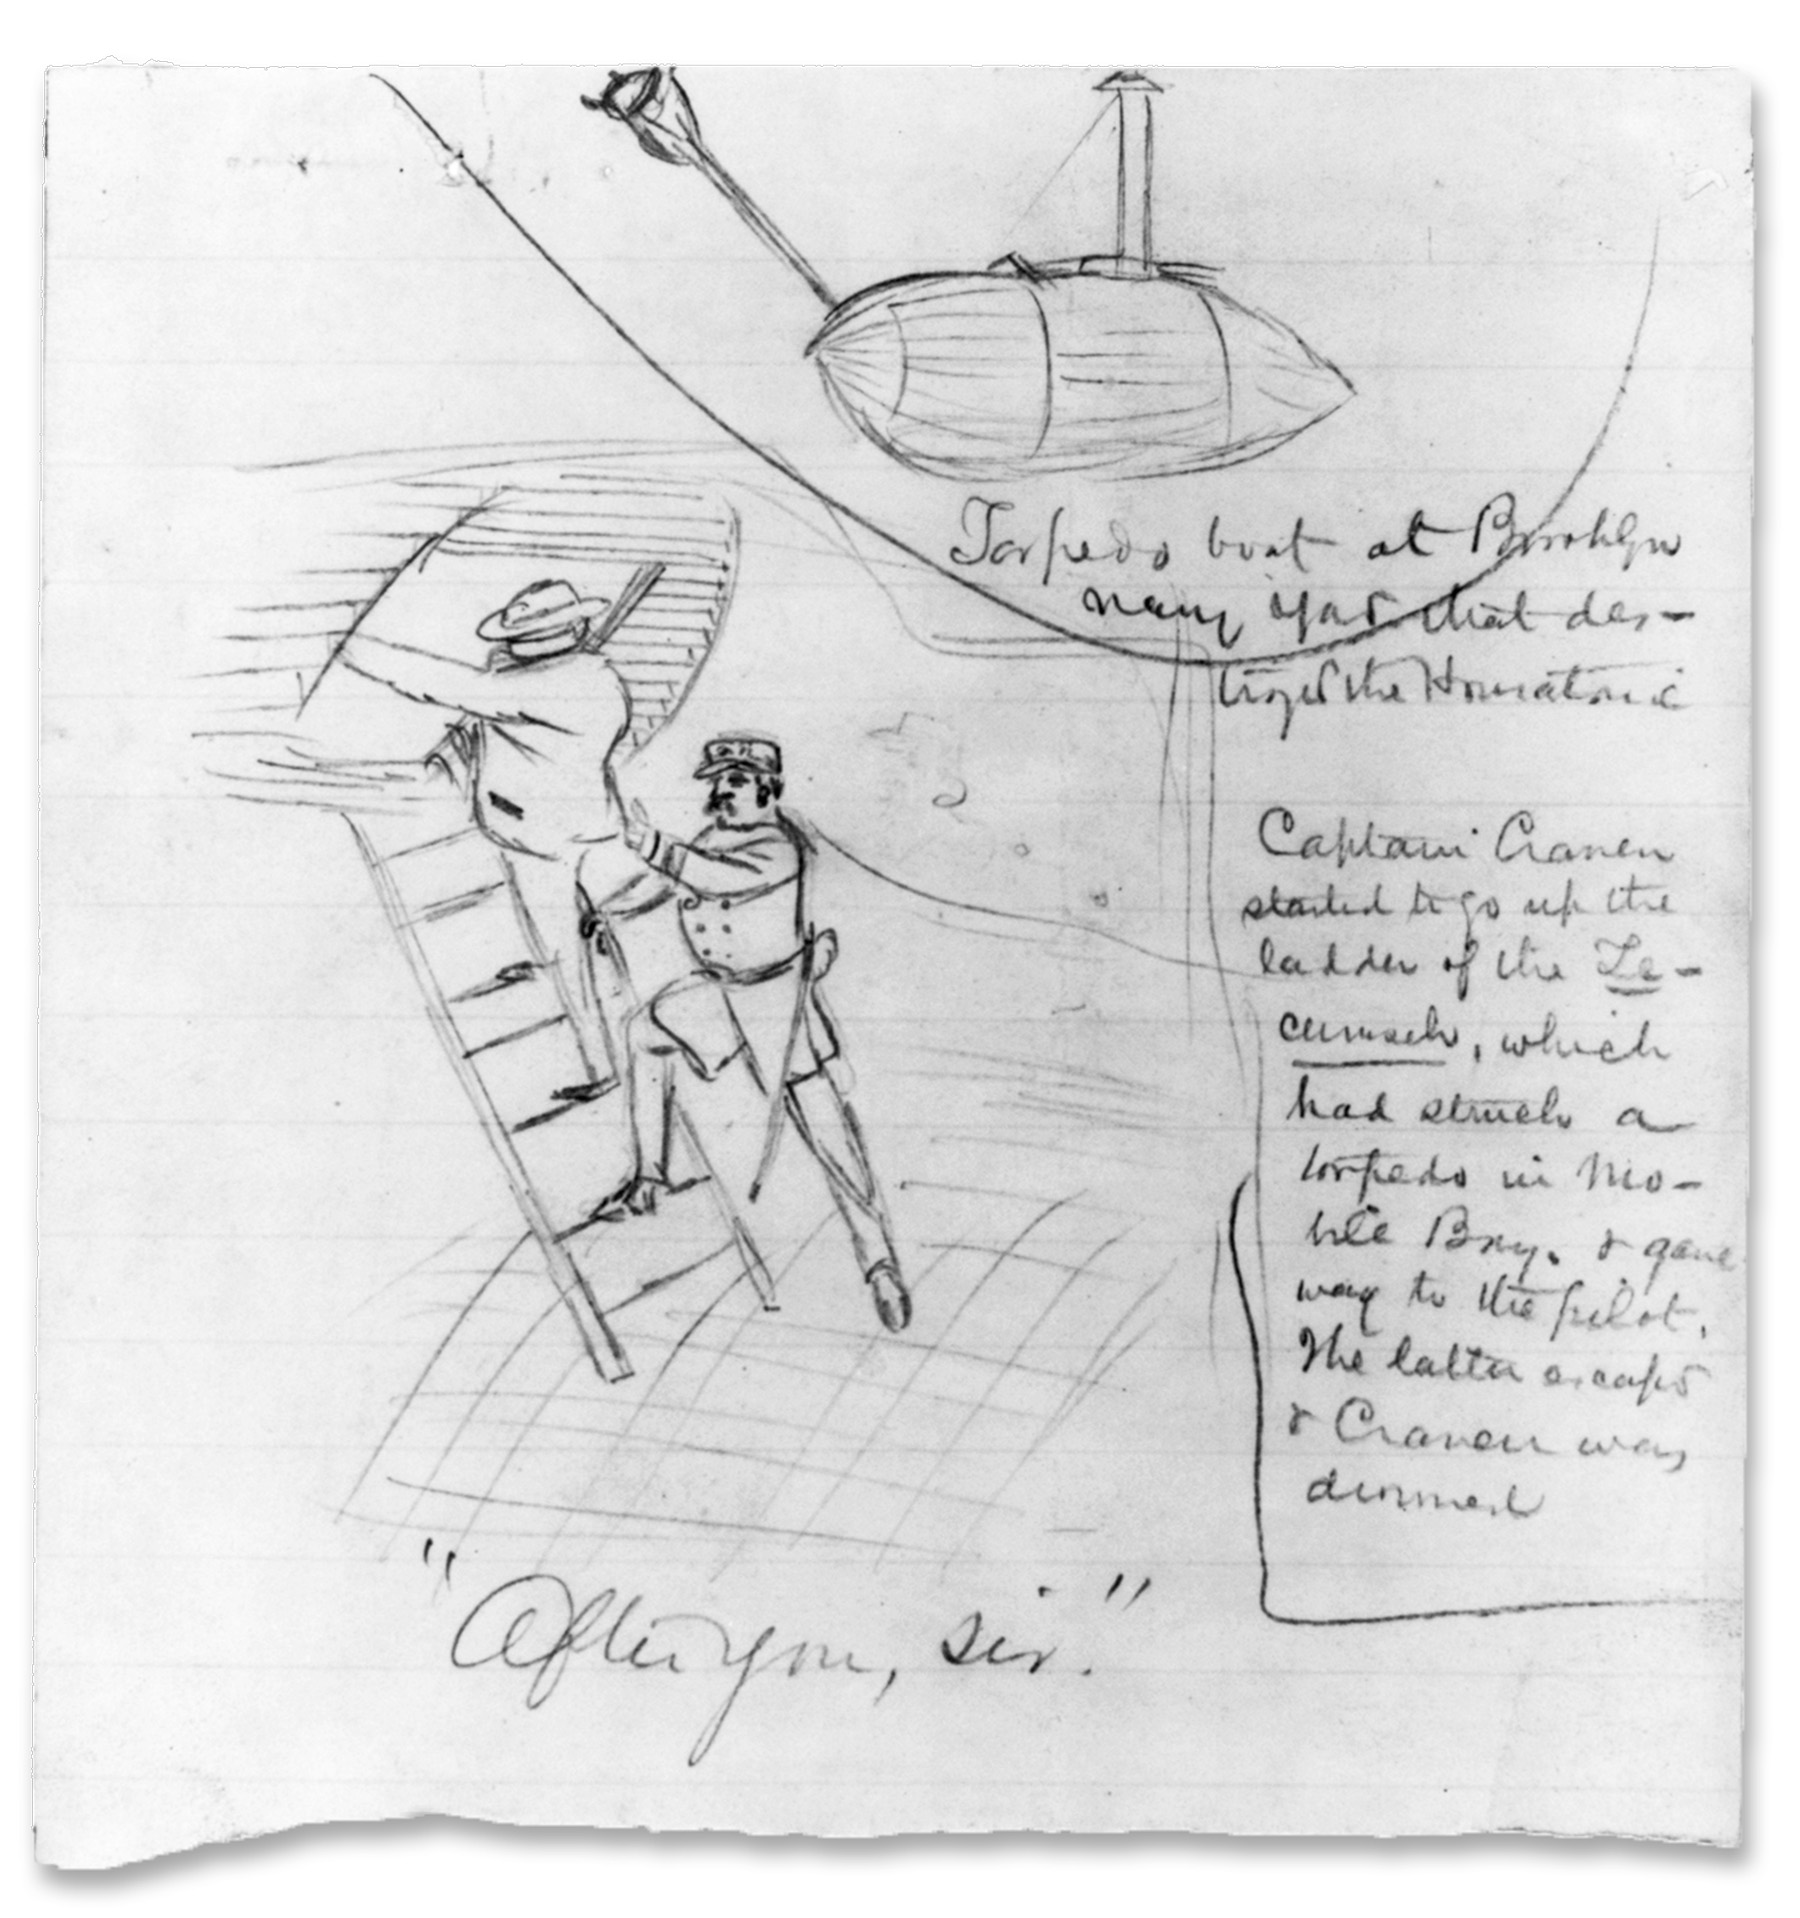 Torpedo boat at Brooklyn
navy yard that des-
troyed the Housatonic
Captain Craven
started to go up the
ladder of the Te-
cumseh, which
had struck a
torpedo in Mo-
bile Bay. & gave
way to the pilot.
The latter escaped
& Craven was
drowned
"After you, sir."